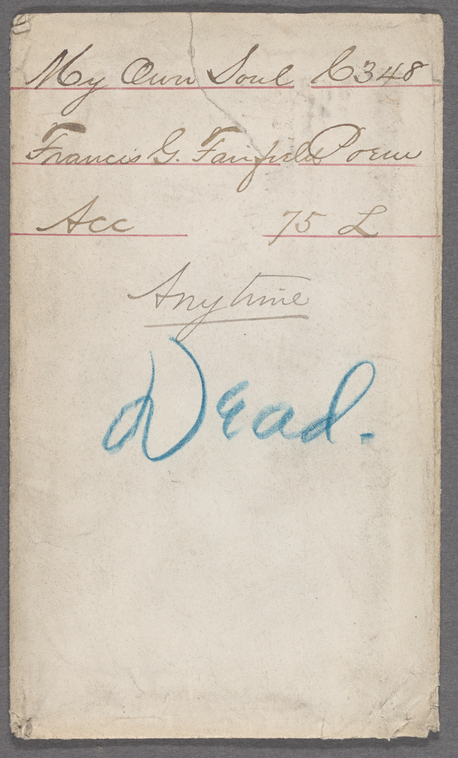 My Own Soul C348
Francis G. Fairfield Poem
Acc 75 L
Anytime
Dead.